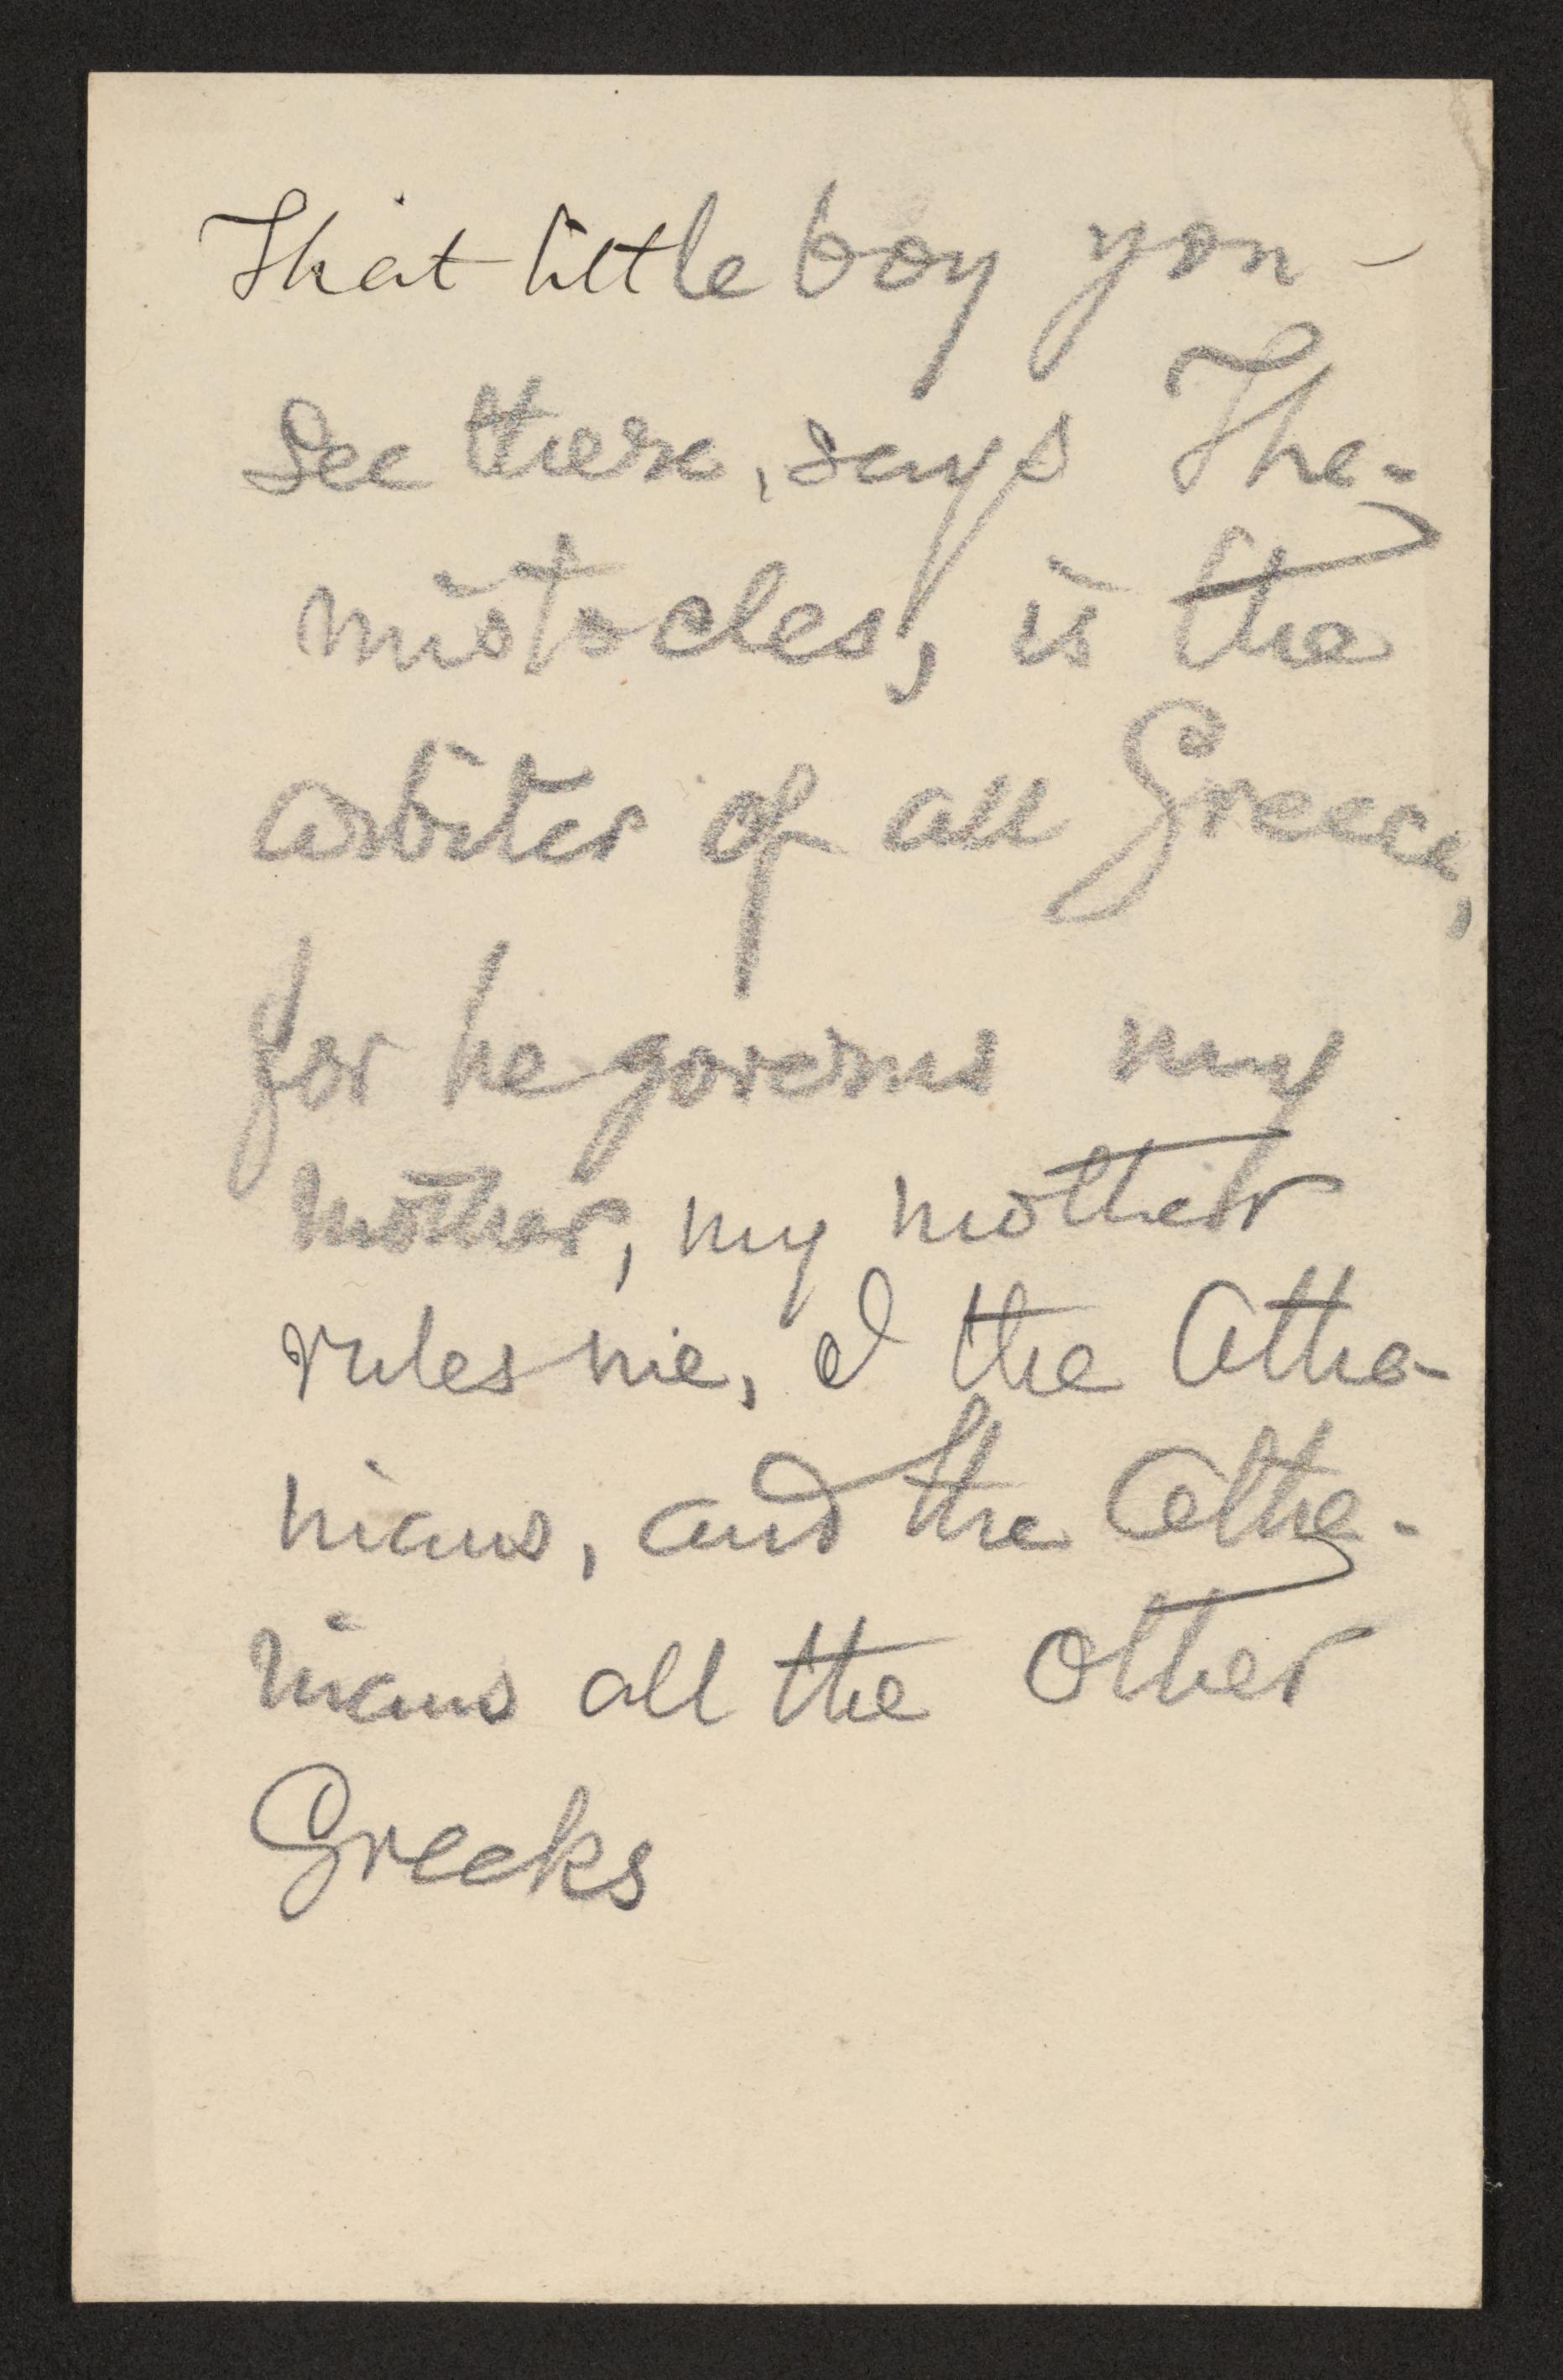 That little boy you
see there, says The-
mistocles, is the
arbiter of all Greece,
for he governs my
mother, my mother
rules me, I the Athe-
nians, and the Athe-
nians all the other
Greeks